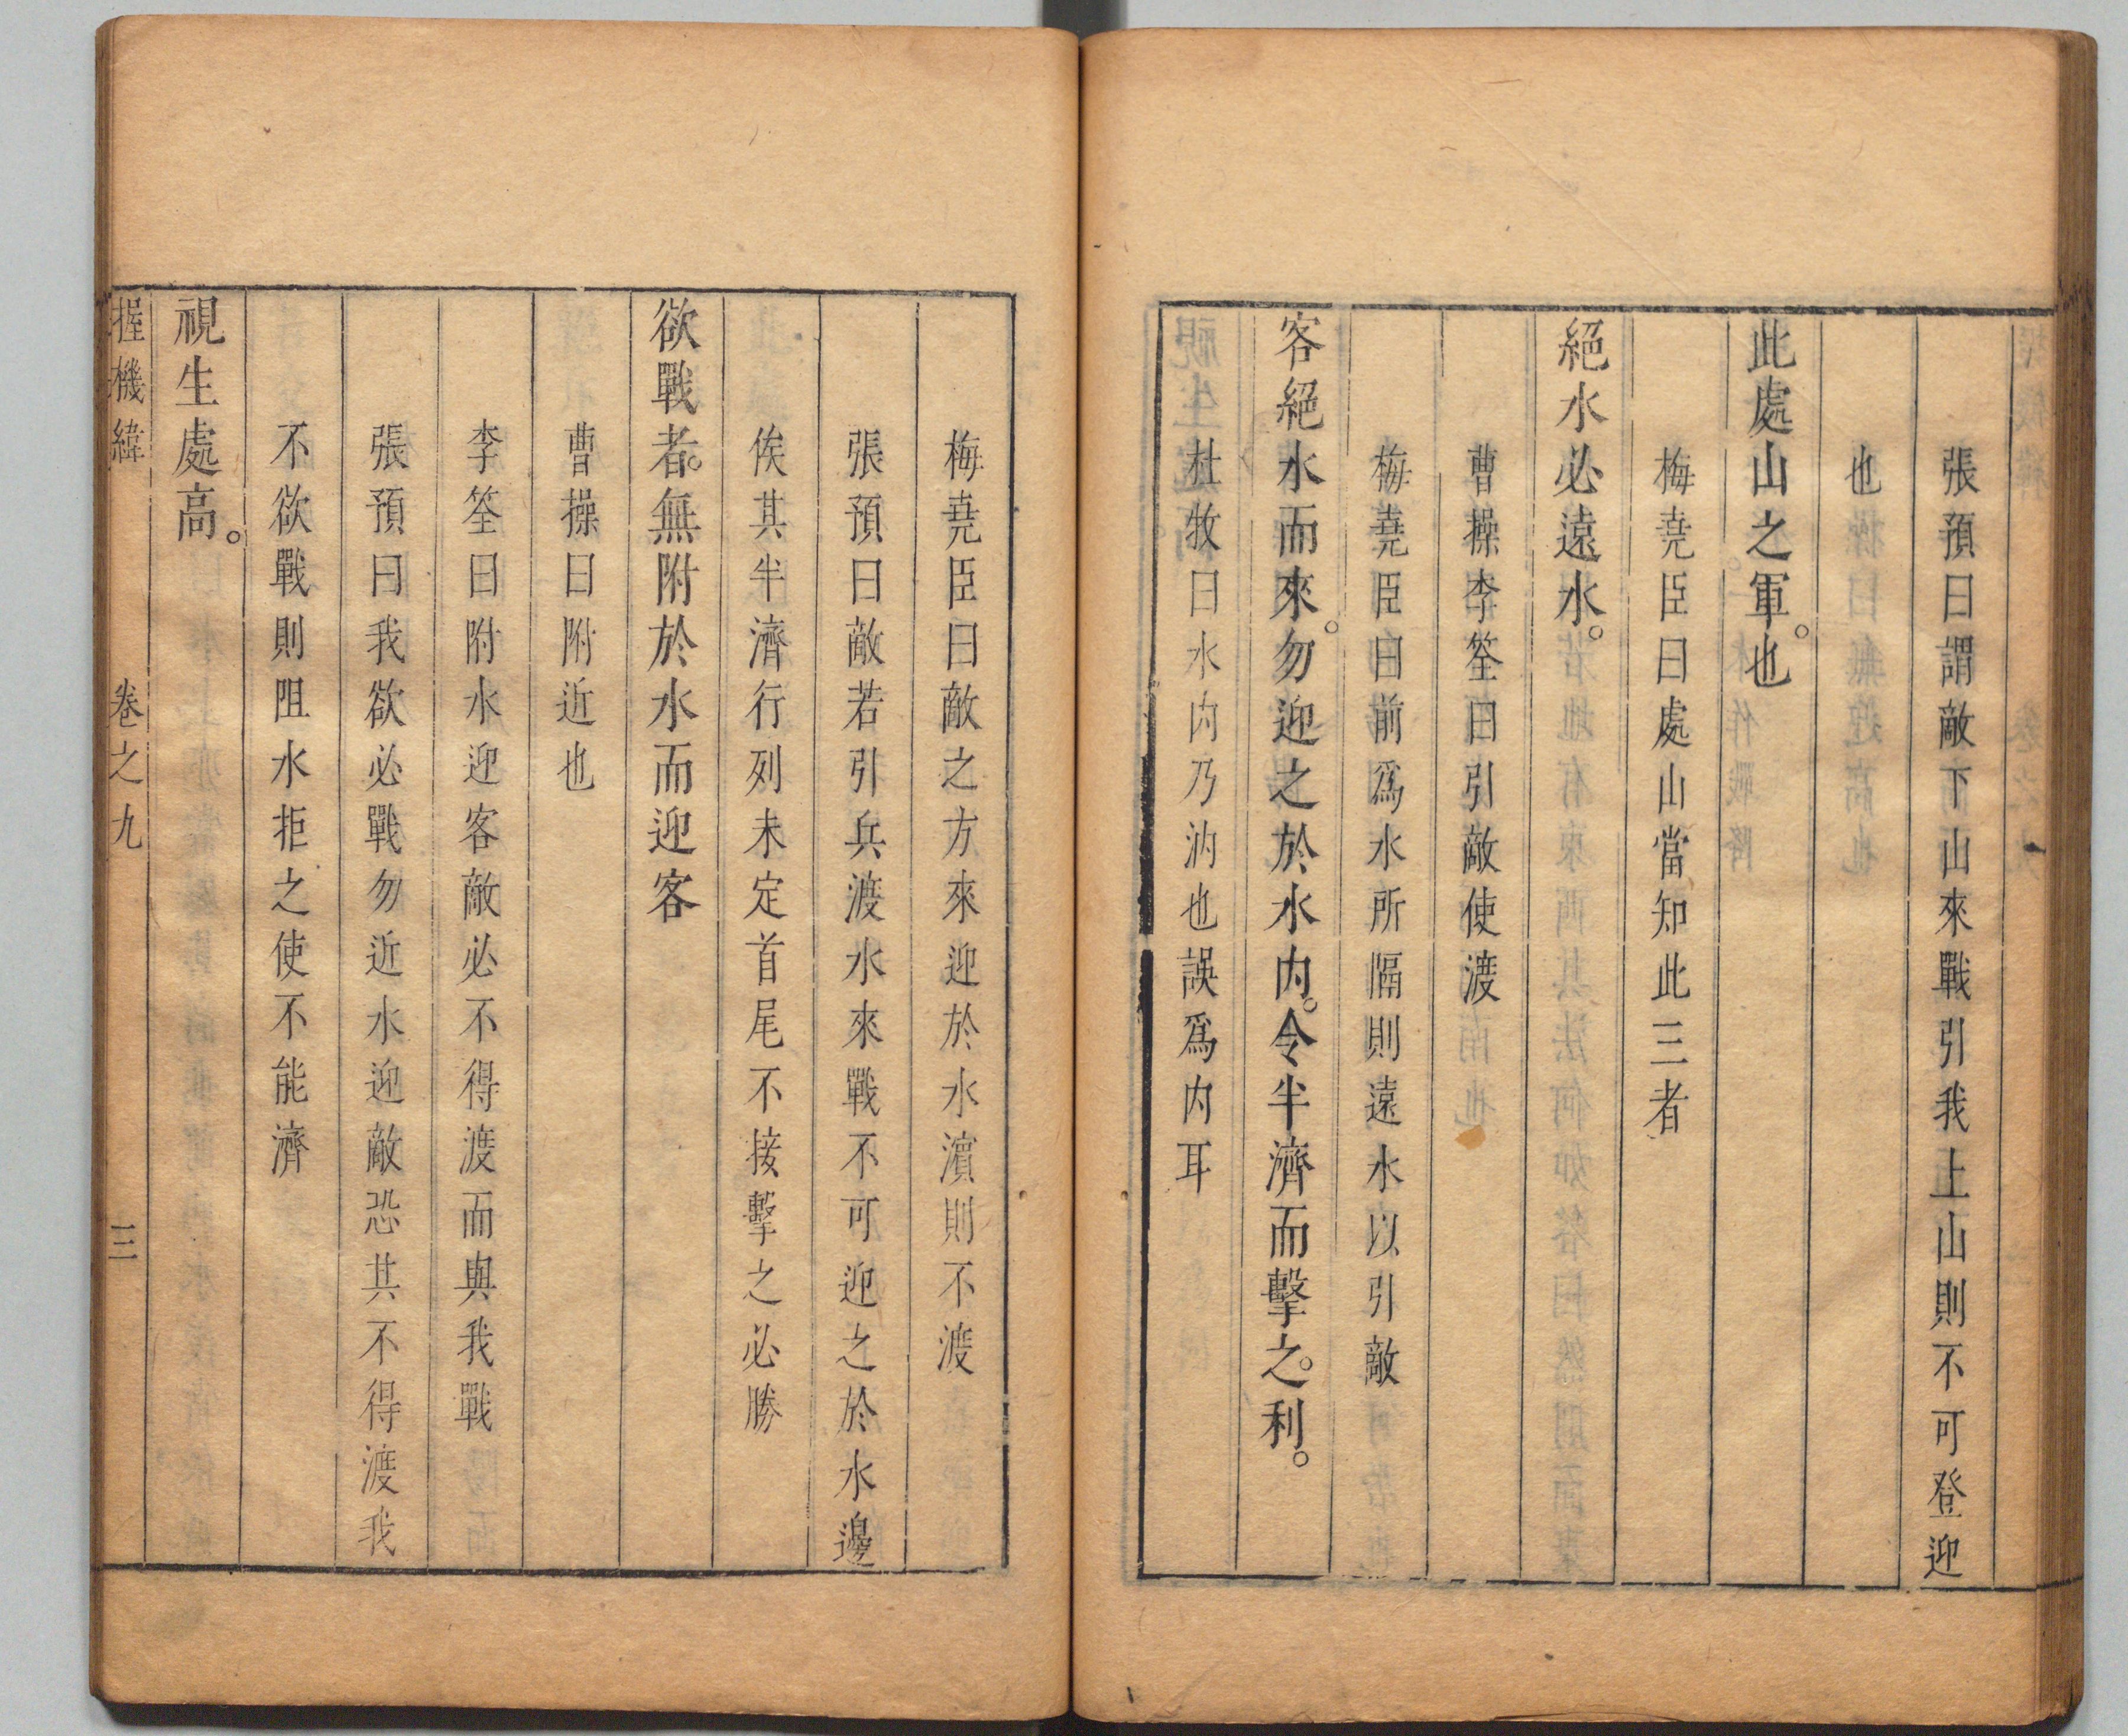 張預曰謂敵下山來戰引我上山則不可登迎
也
此處山之軍。也
梅堯臣曰處山當知此三者
絕水必遠水。
曹操李筌曰引敵使渡
梅堯臣曰前爲水所隔則遠水以引敵
客絕水而來。勿迎之於水內。令半濟而擊之。利。
杜牧曰水內乃汭也誤爲內耳
梅堯臣曰敵之方來迎於水濵則不渡
張預曰敵若引兵渡水來戰不可迎之於水邊
俟其半濟行列未定首尾不接擊之必勝
欲戰者。無附於水而迎客
曹操曰附近也
李筌曰附水迎客敵必不得渡而與我戰
張預曰我欲必戰勿近水迎敵恐其不得渡我
不欲戰則阻水拒之使不能濟
視生處高。
握機緯 卷之九 三